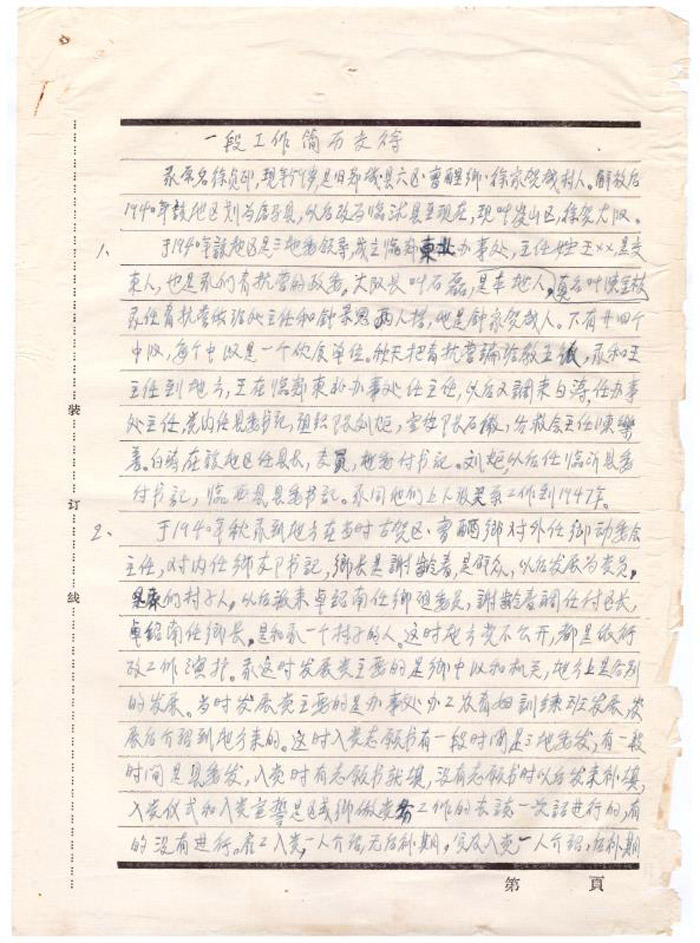 一段工作简历交待
我原名徐贞印,现年59岁,是旧郯城县六区·曹醒鄉·徐家贺城村人。解放后
1940年該地区划为店子县,以后改为临沭县至现在,现叶岌山区,徐贺大队。
1、于1940年該地区是三地委领导,成立临郯東北办事处,主任姓王××,是交
東人,也是我们青抗营的政委。大队长叫石磊,是本地人,真名叶
我任青抗营 主任和钟 两人搭,他是钟家贺城人。下有廿四个
中队,每个中队是一个伙食单位。秋天把青抗营编给教五旅,我和王
主任到地方,王在临郯東北办事处任主任,以后又調来白涛,任办事
处主任,党内任县委书記,组织 刘炬,宣传 石 ,各救会主任陳樂
善。白涛在該地区任县长,委員,地委付书記。刘炬以后任临沂县委
付书記,临 县县委书記。我同他们上人联系工作到1947年。
2、于1940年秋我到地方在当时古贺区·曹 鄉对外任鄉动委会
主任,对内任鄉支部书記,鄉长是謝齡春,是群众,以后发展为党员。
是我们村子人。以后派来卓紹南任鄉组委员,謝齡春調任付区长,
卓绍南任鄉长。是和我一个村子的人。这时地方党不公开,都是依行
政工作演扩。我这时发展党主要的是鄉中队和机关,地方上是个别
的发展。当时发展党主要的是办事处办工农青妇訓练班发展,发
展后介绍到地方来的。这时入党志愿书有一段时间是三地委发,有一段
时间是县委发,入党时有志愿书就填,没有志愿书时以后发来补填,
入党仪式和入党宣誓是区或鄉做党务工作的去談一次話进行的,有
的没有进行。雇工入党,一人介绍,无后补期,贫农入党一人介绍,后补期
装
订
线
第 頁